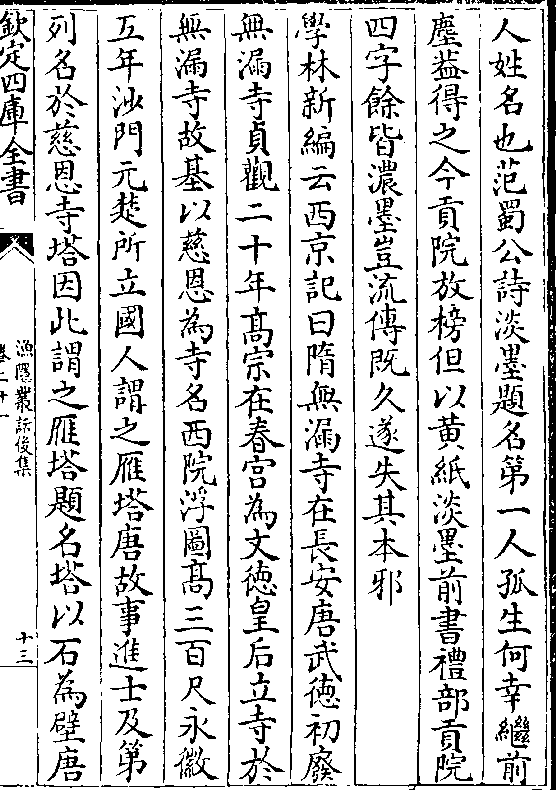 人姓名也范蜀公詩淡墨題名第一人孤生何幸繼前
塵葢得之今貢院放榜但以黄紙淡墨前書禮部貢院
四字餘皆濃墨豈流傳既久遂失其本邪
學林新編云西京記曰隋無漏寺在長安唐武徳初廢
無漏寺貞觀二十年髙宗在春宫為文徳皇后立寺於
無漏寺故基以慈恩為寺名西院浮圖髙三百尺永徽
五年沙門元楚所立國人謂之雁塔唐故事進士及第
列名於慈恩寺塔因此謂之雁塔題名塔以石為壁唐
欽定四庫全書
漁隱叢話後集
卷二十一
十三